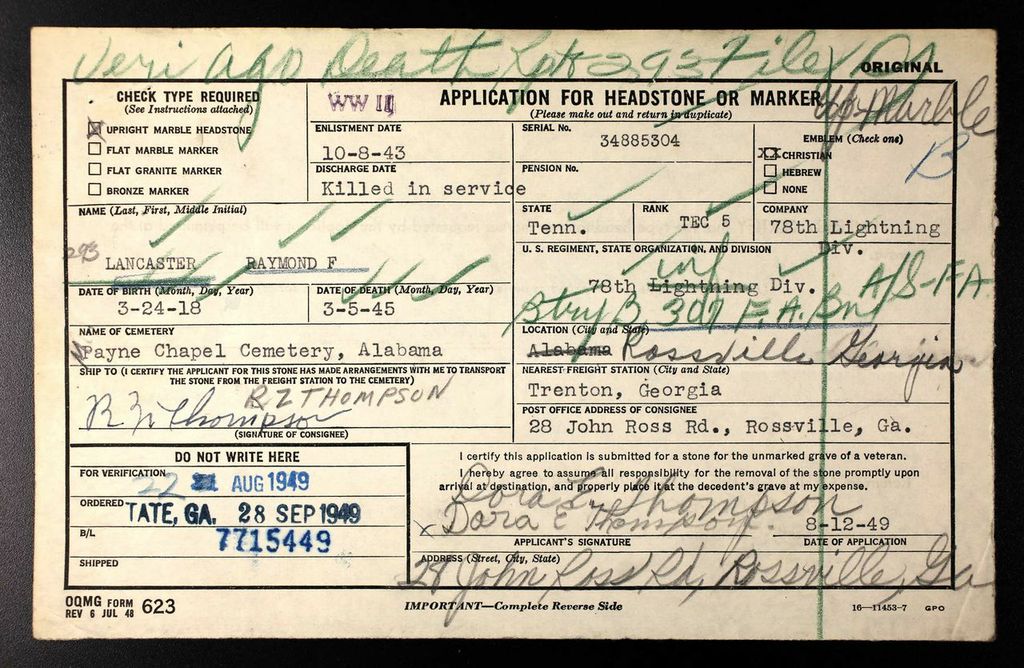 Veri ago Death Rpt 393 File
ORIGINAL
CHECK TYPE REQUIRED
(See Instructions attached)
X UPRIGHT MARBLE HEADSTONE
FLAT MARBLE MARKER
FLAT GRANITE MARKER
BRONZE MARKER
WW II
APPLICATION FOR HEADSTONE OR MARKER
(Please make out and return in duplicate)
Up Marble
B
ENLISTMENT DATE
10-8-43
DISCHARGE DATE
Killed in service
SERIAL No.
34885304
PENSION No.
EMBLEM (Check one)
XX CHRISTIAN
HEBREW
NONE
NAME (Last, First, Middle Initial)
293
LANCASTER RAYMOND F
STATE
Tenn.
RANK
TEC 5
COMPANY
78th Lightning
Div.
U. S. REGIMENT, STATE ORGANIZATION, AND DIVISION
inf
78th Lightning Div.
A/S-FA
Btry B, 307 F.A. Bn
DATE OF BIRTH (Month, Day, Year)
3-24-18
DATE OF DEATH (Month, Day, Year)
3-5-45
NAME OF CEMETERY
Payne Chapel Cemetery, Alabama
LOCATION (City and State)
Alabama Rossville Georgia
SHIP TO (I CERTIFY THE APPLICANT FOR THIS STONE HAS MADE ARRANGEMENTS WITH ME TO TRANSPORT
THE STONE FROM THE FREIGHT STATION TO THE CEMETERY)
R Z THOMPSON
R Z Thompson
(SIGNATURE OF CONSIGNEE)
NEAREST FREIGHT STATION (City and State)
Trenton, Georgia
POST OFFICE ADDRESS OF CONSIGNEE
28 John Ross Rd., Rossville, Ga.
DO NOT WRITE HERE
FOR VERIFICATION
22 AUG 1949
ORDERED
TATE, GA. 28 SEP 1949
B/L
7715449
SHIPPED
I certify this application is submitted for a stone for the unmarked grave of a veteran.
I hereby agree to assume all responsibility for the removal of the stone promptly upon
arrival at destination, and properly place it at the decedent's grave at my expense.
Dora E Thompson
X Dora E Thompson.
8-12-49
APPLICANT'S SIGNATURE
DATE OF APPLICATION
ADDRESS (Street, City, State)
28 John Ross Rd, Rossville, Ga
OQMG FORM 623
REV 6 JUL 48
IMPORTANT—Complete Reverse Side
16—11453-7 GPO